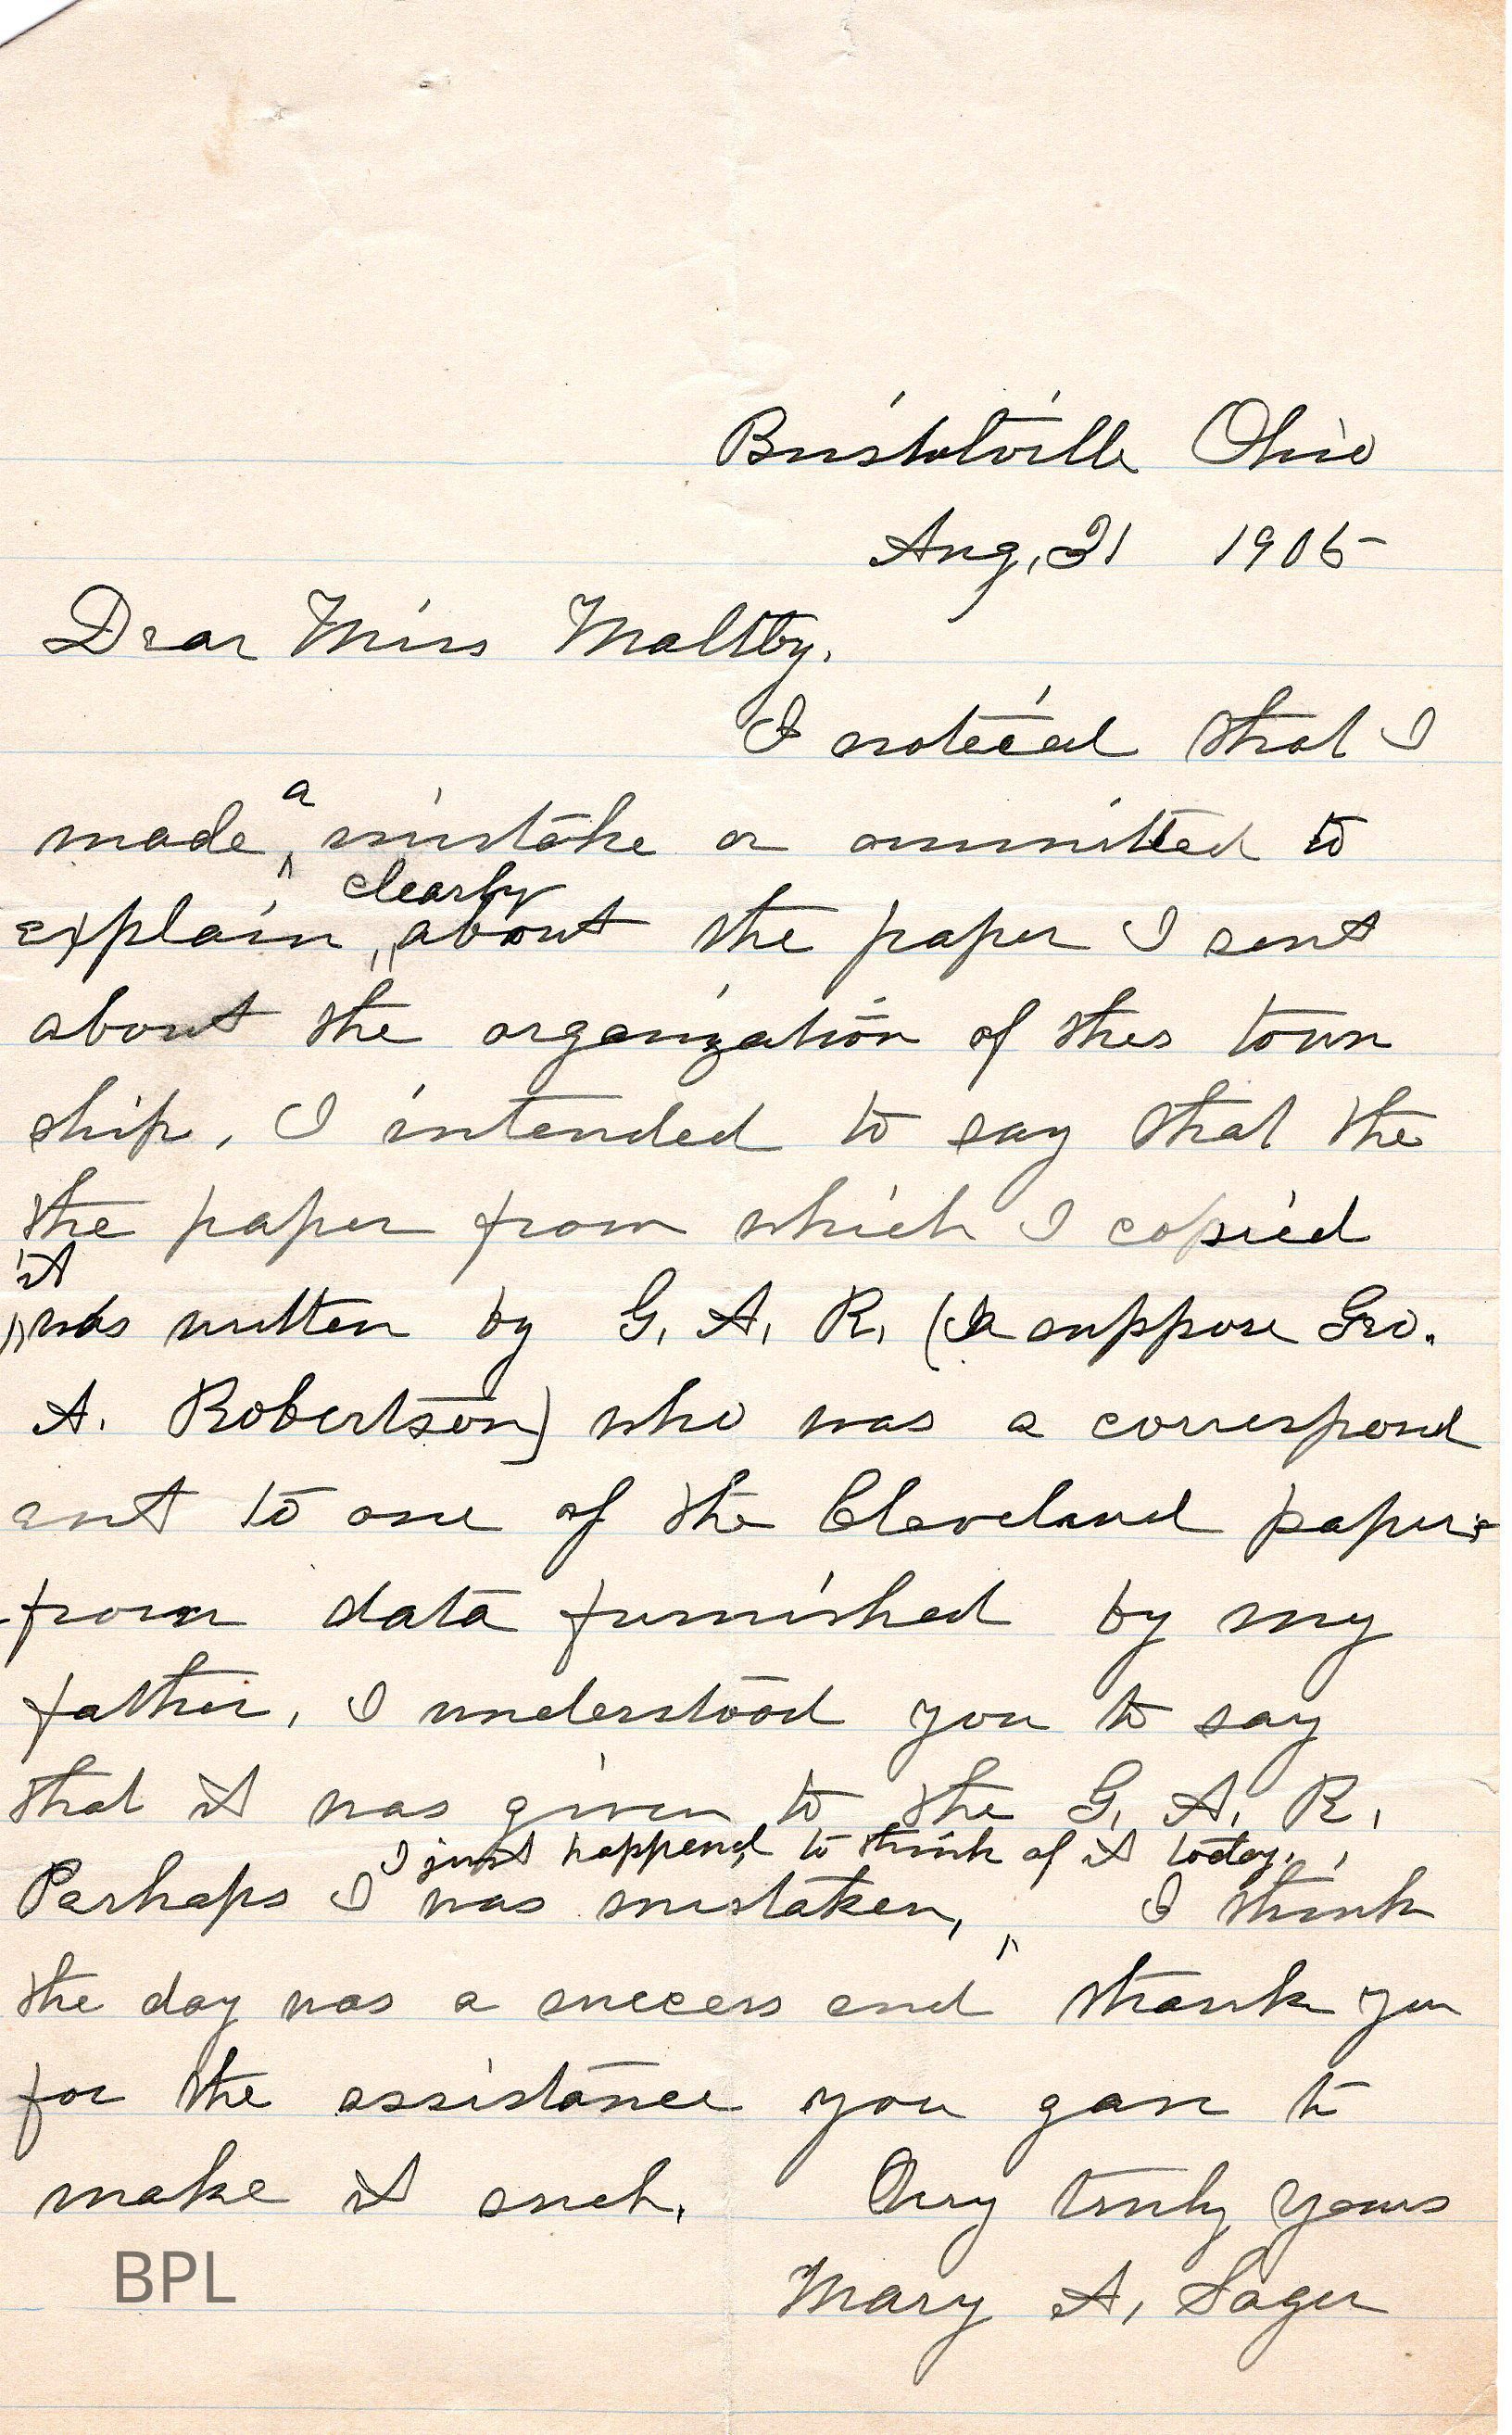 Bristolville Ohio
Aug, 31 1905
Dear Miss Maltby.
I noticed that I
a
made mistake or ommitted to
clearly
explain about the paper I sent
about the organization of this town
ship, I intended to say that the
the paper from which I copied
it
was written by G. A. R. (I suppose Geo.
A. Robertson) who was a correspond
ent to one of the Cleveland papers
from data furnished by my
father, I understood you to say
that it was given to the G. A. R.
I just happend to think of it today.
Perhaps I was mistaken, I think
the day was a success and thank you
for the assistance you gave to
make it such. Very truly yours
BPL
Mary A, Sager